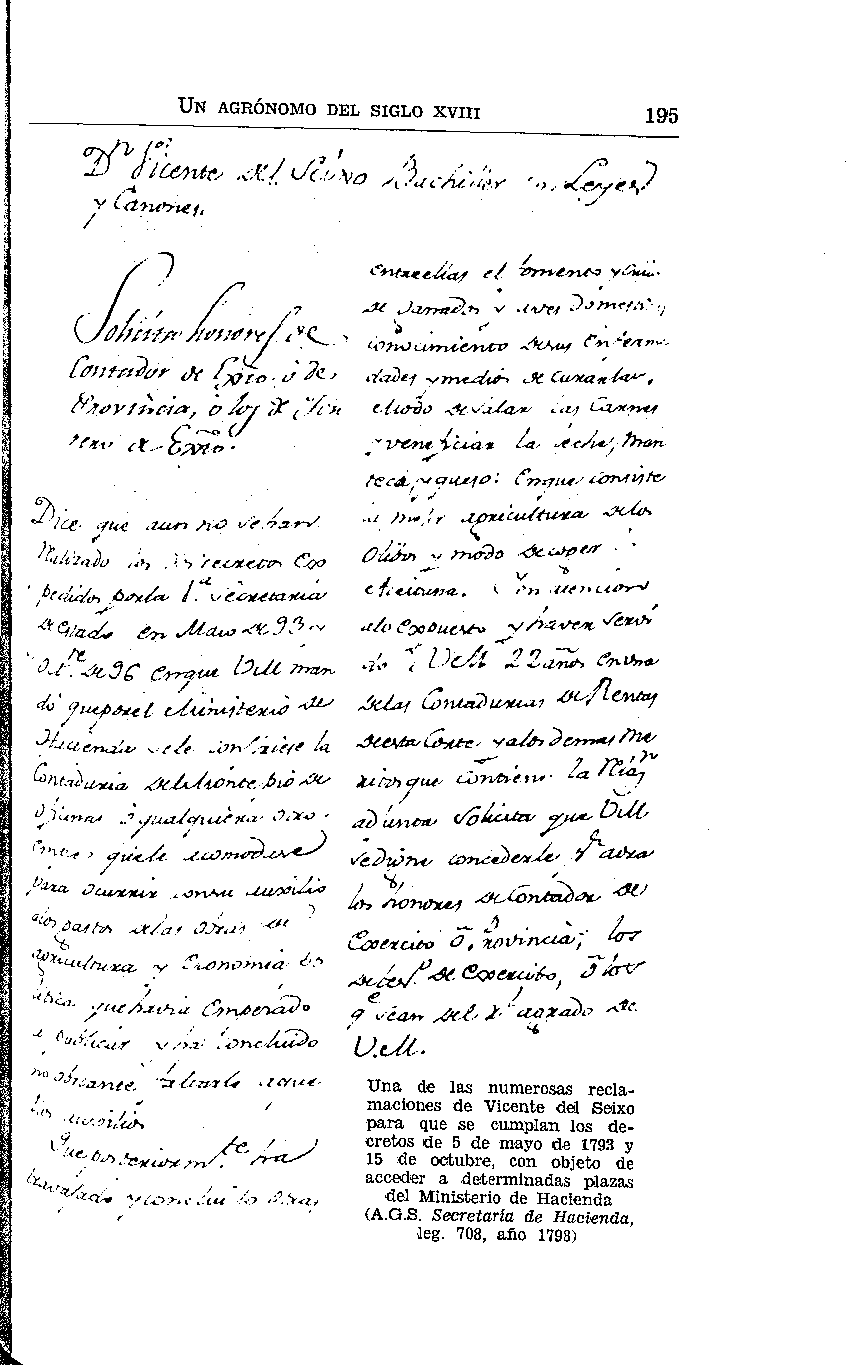 UN AGRÓNOMO DEL SIGLO XVIII
195
Dn Vicente del Seixo Bachiller en Leyes
y Canones.
Solicita honores de
Contador de Exto. ó de
Provincia, ó los de
de Exto.
Dice que aun no se han
los Decretos ex
pedidos por la 1.a Secretaria
de Estado en Maio de 93 y
de 96 en que V.M. man
dó que por el Ministerio de
Hacienda se le confiriese la
Contaduria del Monte pio de
ó qualquiera otro
empleo que le acomodase
para ocurrir con su auxilio
a los gastos de las obras de
agricultura y Economia
que havia empezado
a publicar y ha concluido
no obstante faltarle aque
llos auxilios
Que posteriorm.te ha
travajado y concluido obras,
entre ellas el fomento y cria
de Ganados y aves Domesti
conocimiento de sus enferme
dades y medios de curarlas.
Modo de salar las Carnes
y veneficiar la leche, Man
teca, y queso: En que consiste
la mejor agricultura de los
Olibos y modo de coger
Aceituna. En atencion
a lo expuesto y haver servi
do á V.M. 22 años en una
de las Contadurias de Rentas
de esta Corte y a los demas Me
ritos que contiene la
adjunta Solicita que V.M.
se digne concederle p.r aora
los honores de Contador de
Exercito ó Provincia; los
de de Exercito, ó los
q.e sean del R.l agrado de
V.M.
Una de las numerosas recla-
maciones de Vicente del Seixo
para que se cumplan los de-
cretos de 5 de mayo de 1793 y
15 de octubre, con objeto de
acceder a determinadas plazas
del Ministerio de Hacienda
(A.G.S. Secretaría de Hacienda,
leg. 708, año 1798)